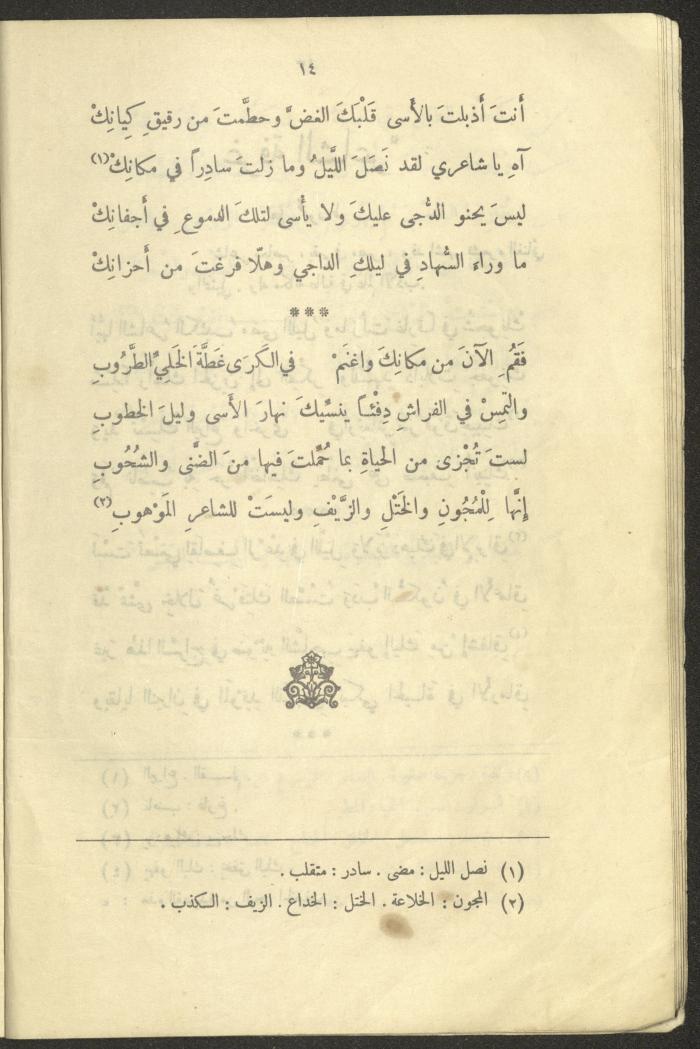 ١٤
أَنتَ أَذبلتَ بالأَسى قَلْبَكَ الغضَّ وحطَّمتَ من رقيقِ كِيانِكْ
آهِ يا شاعري لقد نَصَلَ اللَّيلُ وما زلتَ سادِراً في مكانِكْ(١)
ليسَ يحنو الدُّجى عليكَ ولا يأْسى لتلكَ الدموعِ في أَجفانِكْ
ما وراء السُّهادِ في ليلكِ الداجي وهلّا فرغتَ من أَحزانِكْ
***
فَقُمِ الآنَ من مكانِكَ واغنَمْ في الكَرَى غَطَّةَ الخَليِّ الطَّرُوبِ
والتمِسْ في الفراشِ دِفْئاً ينسِّيكَ نهارَ الأَسى وليلَ الخطوبِ
لستَ تُجْزى من الحياةِ بما حُمِّلتَ فيها منَ الضَّنى والشُحُوبِ
إِنَّها لِلْمُجُونِ والخَتْلِ والزَّيْفِ وليسَتْ للشاعرِ المَوْهوبِ(٢)
(١) نصل الليل : مضى . سادر : متقلب .
(٢) المجون : الخلاعة . الختل : الخداع . الزيف : الكذب .